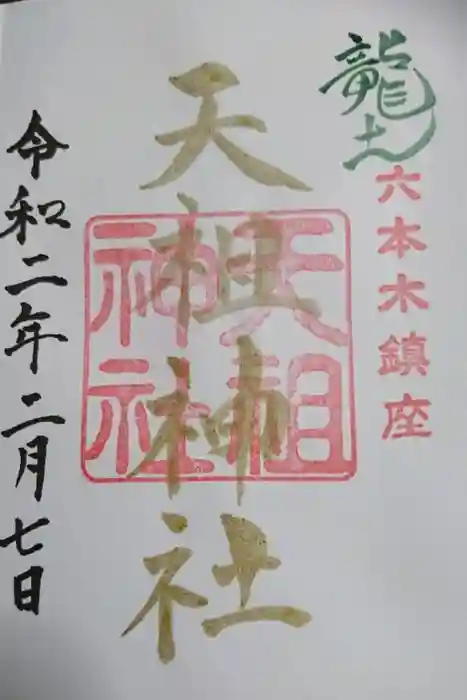 龍土
六本木鎮座
天祖神社
天祖
神社
令和二年二月七日